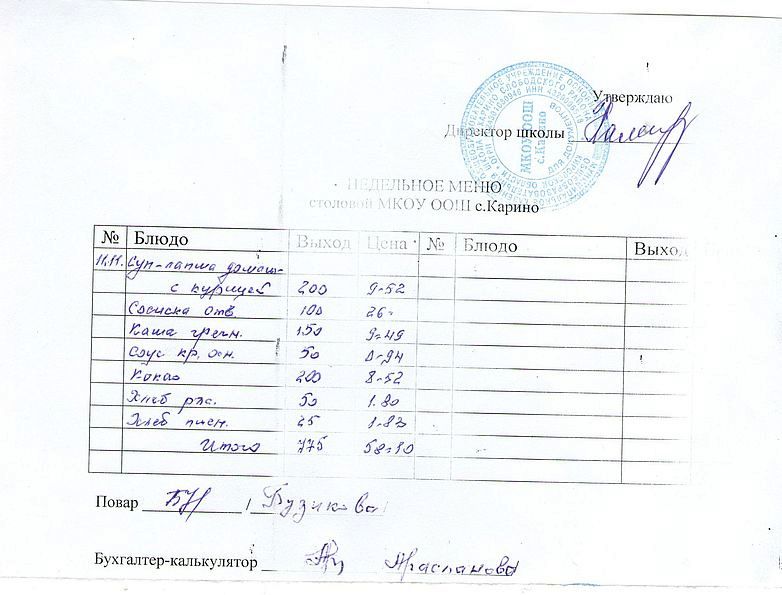 Утверждаю
Директор школы
НЕДЕЛЬНОЕ МЕНЮ
столовой МКОУ ООШ с.Карино
№ Блюдо Выход Цена № Блюдо Выход
11.11. Суп-лапша домаш-
с курицей 200 9-52
Сосиска отв. 100 26-
Каша гречн. 150 9-49
Соус кр. осн. 50 0-94
Какао 200 8-52
Хлеб рж. 50 1.80
Хлеб пшен. 25 1-83
Итого 775 58-10
Повар / Бузикова
Бухгалтер-калькулятор
МКОУ ООШ
с.Карино